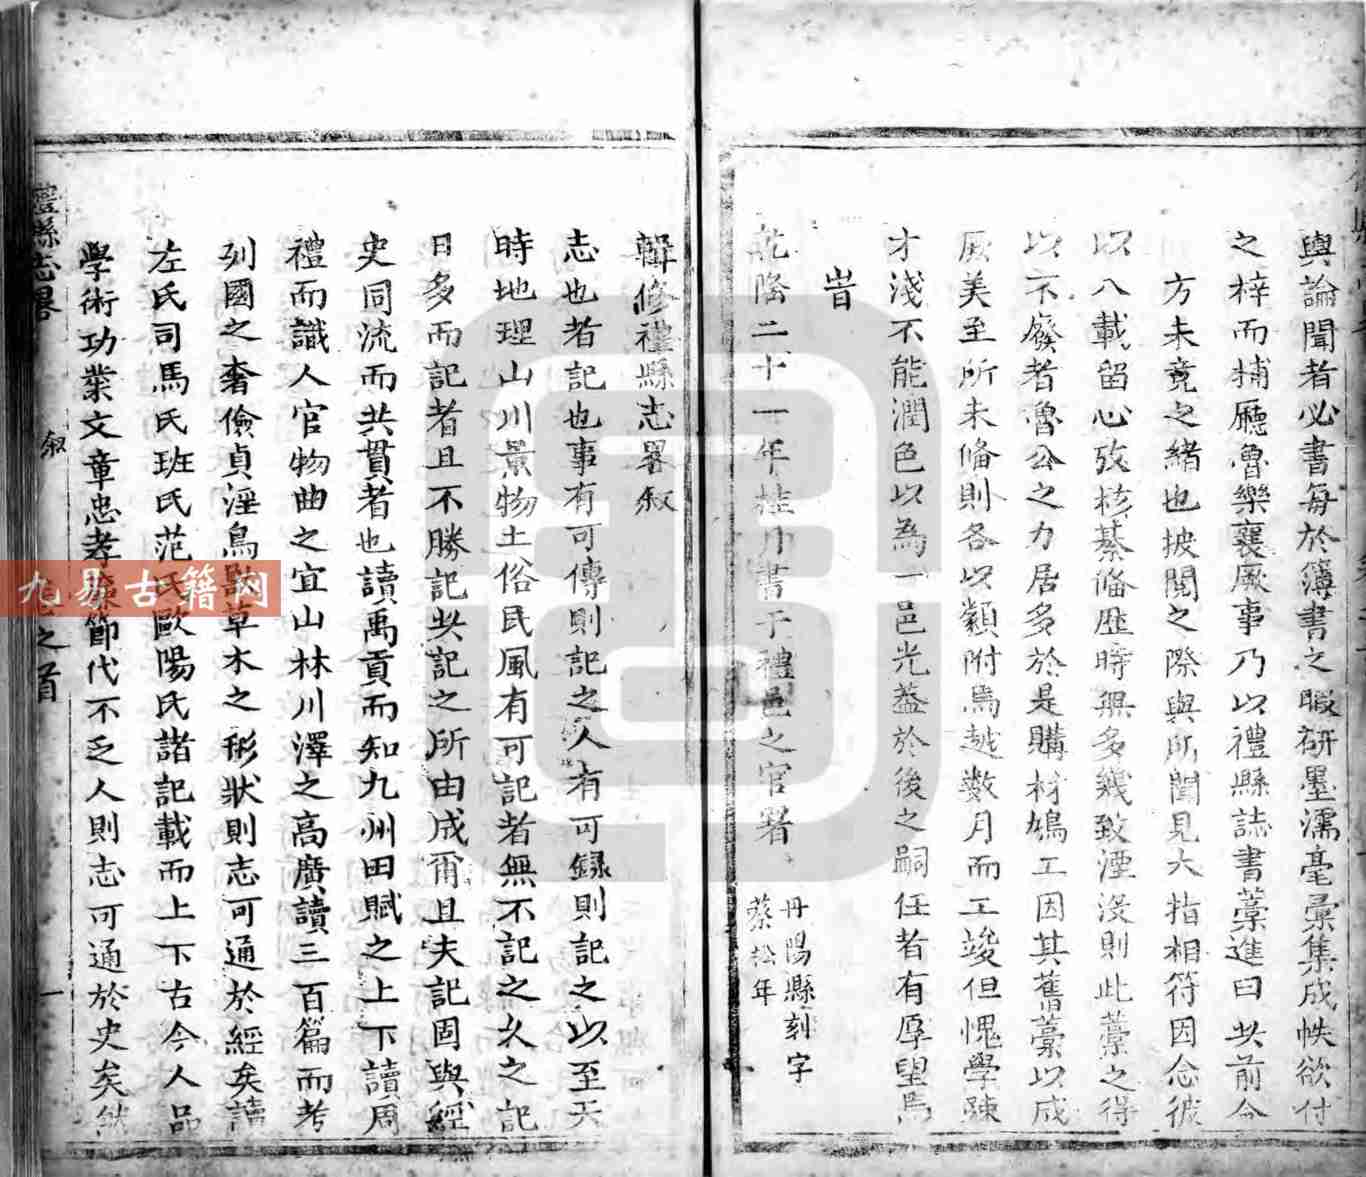 輿論聞者必書每於簿書之職研墨濡毫彙集成帙欲付
之梓而捕廳魯樂襄厥事乃以禮縣誌書藁進曰此前令
方未竟之緒也披閱之際與所聞見大指相符因念彼
以八載留心攷核綦備歷時無多幾致湮沒則此藁之得
以不廢者魯公之力居多於是購材鳩工因其舊藁以成
厥美至所未備則各以類附焉越数月而工竣但愧學踈
才淺不能潤色以為一邑光葢於後之嗣任者有厚望焉
旹
乾隆二十一年桂月書于禮邑之官署
丹陽縣刻字
蔡松年
輯修禮縣志畧叙
志也者記也事有可傳則記之人有可錄則記之以至天
時地理山川景物土俗民風有可記者無不記之久之記
日多而記者且不勝記此記之所由成爾且夫記固與經
史同流而共貫者也讀禹貢而知九州田賦之上下讀周
禮而識人官物曲之宜山林川澤之高廣讀三百篇而考
列國之奢儉貞淫鳥獸草木之形狀則志可通於經矣讀
左氏司馬氏班氏范氏歐陽氏諸記載而上下古今人品
學術功業文章忠孝廉節代不乏人則志可通於史矣然
禮縣志畧
叙
卷之首
一
九易古籍网